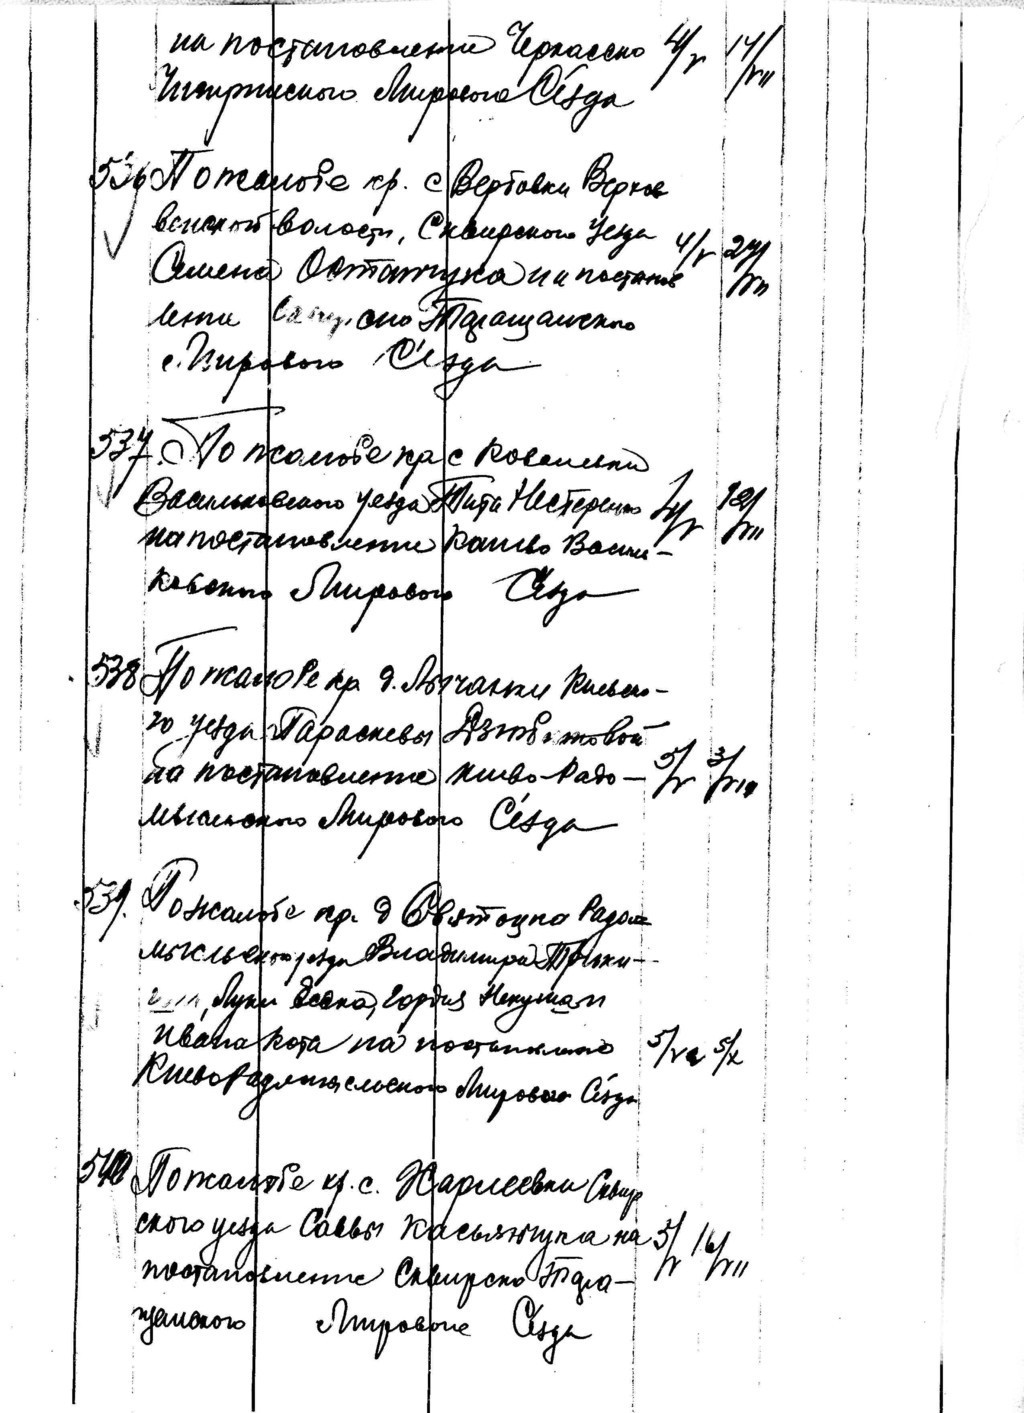 на постановление Черкасско 4/V 17/VII
Чигиринского Мирового Съезда
536 По жалобе кр. с Вербовки Верхов
ской волости, Сквирского уезда
Семена Остапчука на постанов 4/V 24/VII
ление Сквирско Таращанского
Мирового Съезда
537. По жалобе кр с Ковалевки
Васильковского уезда Тита Нестеренко 4/V 12/VII
на постановление Киево Василь-
ковского Мирового Съезда
538 По жалобе кр д. Лычанки Киевско-
го уезда Параскевы
на постановление Киево-Радо- 5/V 3/VIII
мысльского Мирового Съезда
539. По жалобе кр. д Радом
мысльского уезда Владимира
Луки Гордия
Ивана Кота на постановление 5/X
Киево Радомысльского Мирового Съезда
540 По жалобе кр. с. Харлеевки Сквир
ского уезда Саввы Касьянчука на 5/V 16/VII
постановление Сквирско Тара-
щанского Мирового Съезда